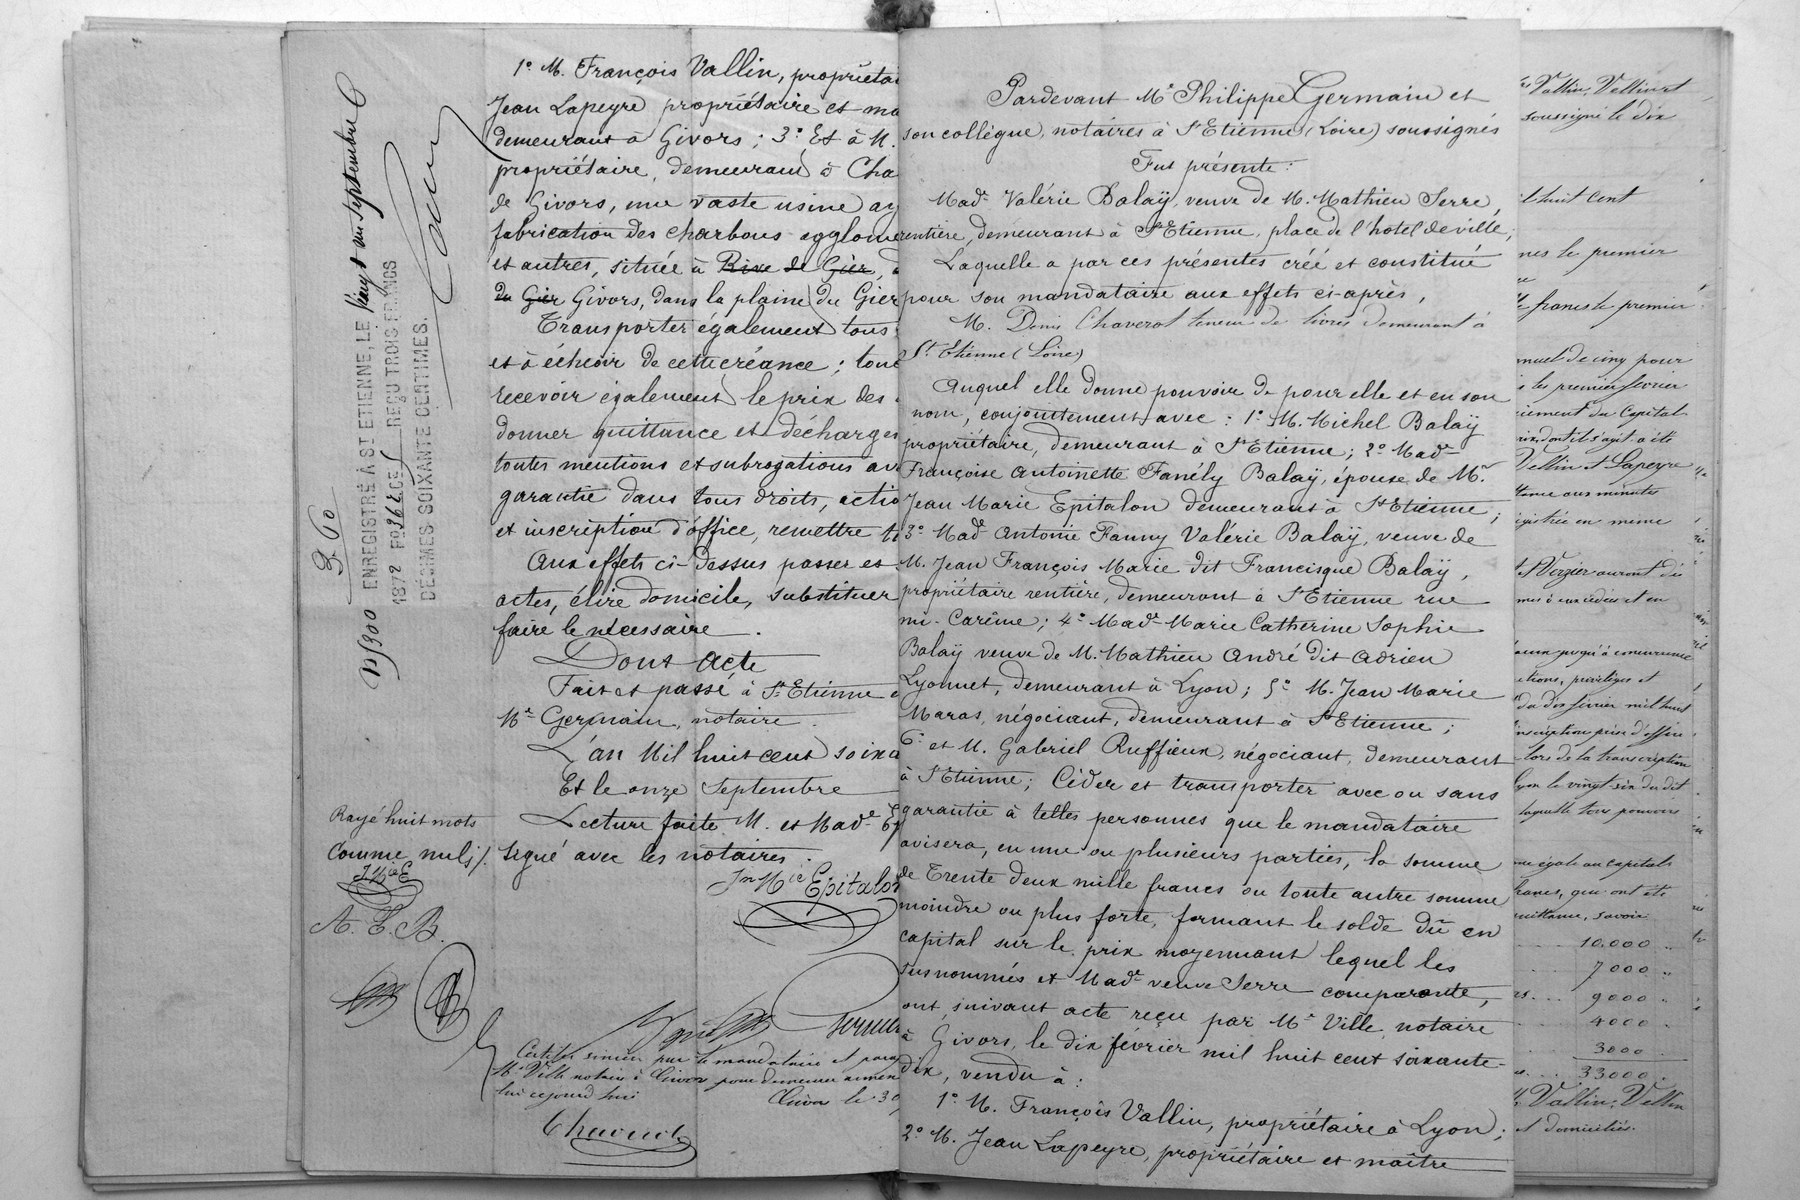 1º M. François Vallin, propriétai
Jean Lapeyre propriétaire et ma
demeurant à Givors; 3º Et à M.
propriétaire, demeurant à Cha
de Givors, une vaste usine ay
fabrication des charbons agglomé
et autres, située à Rive de Gier,
du Gier Givors, dans la plaine du Gier
Transporter également tous
et à échoir de cette créance; tou
recevoir également le prix des
donner quittance et décharges
toutes mentions et subrogations av
garantie dans tous droits, actio
et inscription d'office, remettre
Aux effets ci-dessus passer et
actes, élire domicile, substituer
faire le nécessaire.
Dont acte
Fait et passé à St Etienne
Me Germain, notaire.
L'an Mil huit cent soixa
Et le onze Septembre
Lecture faite, M. et Made Ep
signé avec les notaires.
Jn Mie Epitalo
Certifié sincère par le mandataire et para
Me Ville notaire à Givors pour demeurer annex
lui cejourd'hui
Givors le 30
Chaverot
Rayé huit mots
comme nuls
J M E
A. F. B.
360
ENREGISTRÉ A ST ETIENNE, LE Vingt un Septembre
1872 Fo 96 Ce REÇU TROIS FRANCS
DÉCIMES SOIXANTE CENTIMES.
Pardevant Me Philippe Germain et
son collègue, notaires à St Etienne (Loire) soussignés
Fut présente:
Made Valérie Balaÿ, veuve de M. Mathieu Serre,
rentière, demeurant à St Etienne, place de l'hotel de ville;
Laquelle a par ces présentes créé et constitué
pour son mandataire aux effets ci-après,
M. Denis Chaverot teneur de livres demeurant à
St Etienne (Loire)
Auquel elle donne pouvoir de pour elle et en son
nom, conjointement avec: 1º M. Michel Balaÿ
propriétaire, demeurant à St Etienne; 2º Made
Françoise Antoinette Fanély Balaÿ, épouse de Mr
Jean Marie Epitalon demeurant à St Etienne;
3º Made Antoinie Fanny Valérie Balaÿ, veuve de
M. Jean François Marie dit Francisque Balaÿ,
propriétaire rentière, demeurant à St Etienne rue
mi-Carême; 4º Made Marie Catherine Sophie
Balaÿ veuve de M. Mathieu André dit Adrien
Lyonnet, demeurant à Lyon; 5º M. Jean Marie
Maras, négociant, demeurant à St Etienne;
6º et M. Gabriel Ruffieux, négociant, demeurant
à St Etienne; Céder et transporter avec ou sans
garantie à telles personnes que le mandataire
avisera, en une ou plusieurs parties, la somme
de Trente deux mille francs ou toute autre somme
moindre ou plus forte, formant le solde dû en
capital sur le prix moyennant lequel les
susnommés et Made veuve Serre comparante,
ont, suivant acte reçu par Me Ville, notaire
à Givors, le dix février mil huit cent soixante-
dix, vendu à:
1º M. François Vallin, propriétaire à Lyon;
2º M. Jean Lapeyre, propriétaire et maître
Vallin, Vellin et
soussigné le dix
il huit cent
nes le premier
francs le premier
nnuel de cinq pour
les premier février
iement du Capital
prix dont il s'agit a été
Vellin et Lapeyre
ttance aux minutes
egistrée en meme
t Verzier auront du
jusqu'à concurrence
ctions, privilèges et
du dix février mil huit
inscription prise d'office
lors de la transcription
Lyon le vingt six du dit
laquelle tous pouvoirs
me égale au capital
francs, qui ont été
quittance, savoir
10.000
7000
9000
4000
3000
33000
Vallin, Vellin
et domiciliés.